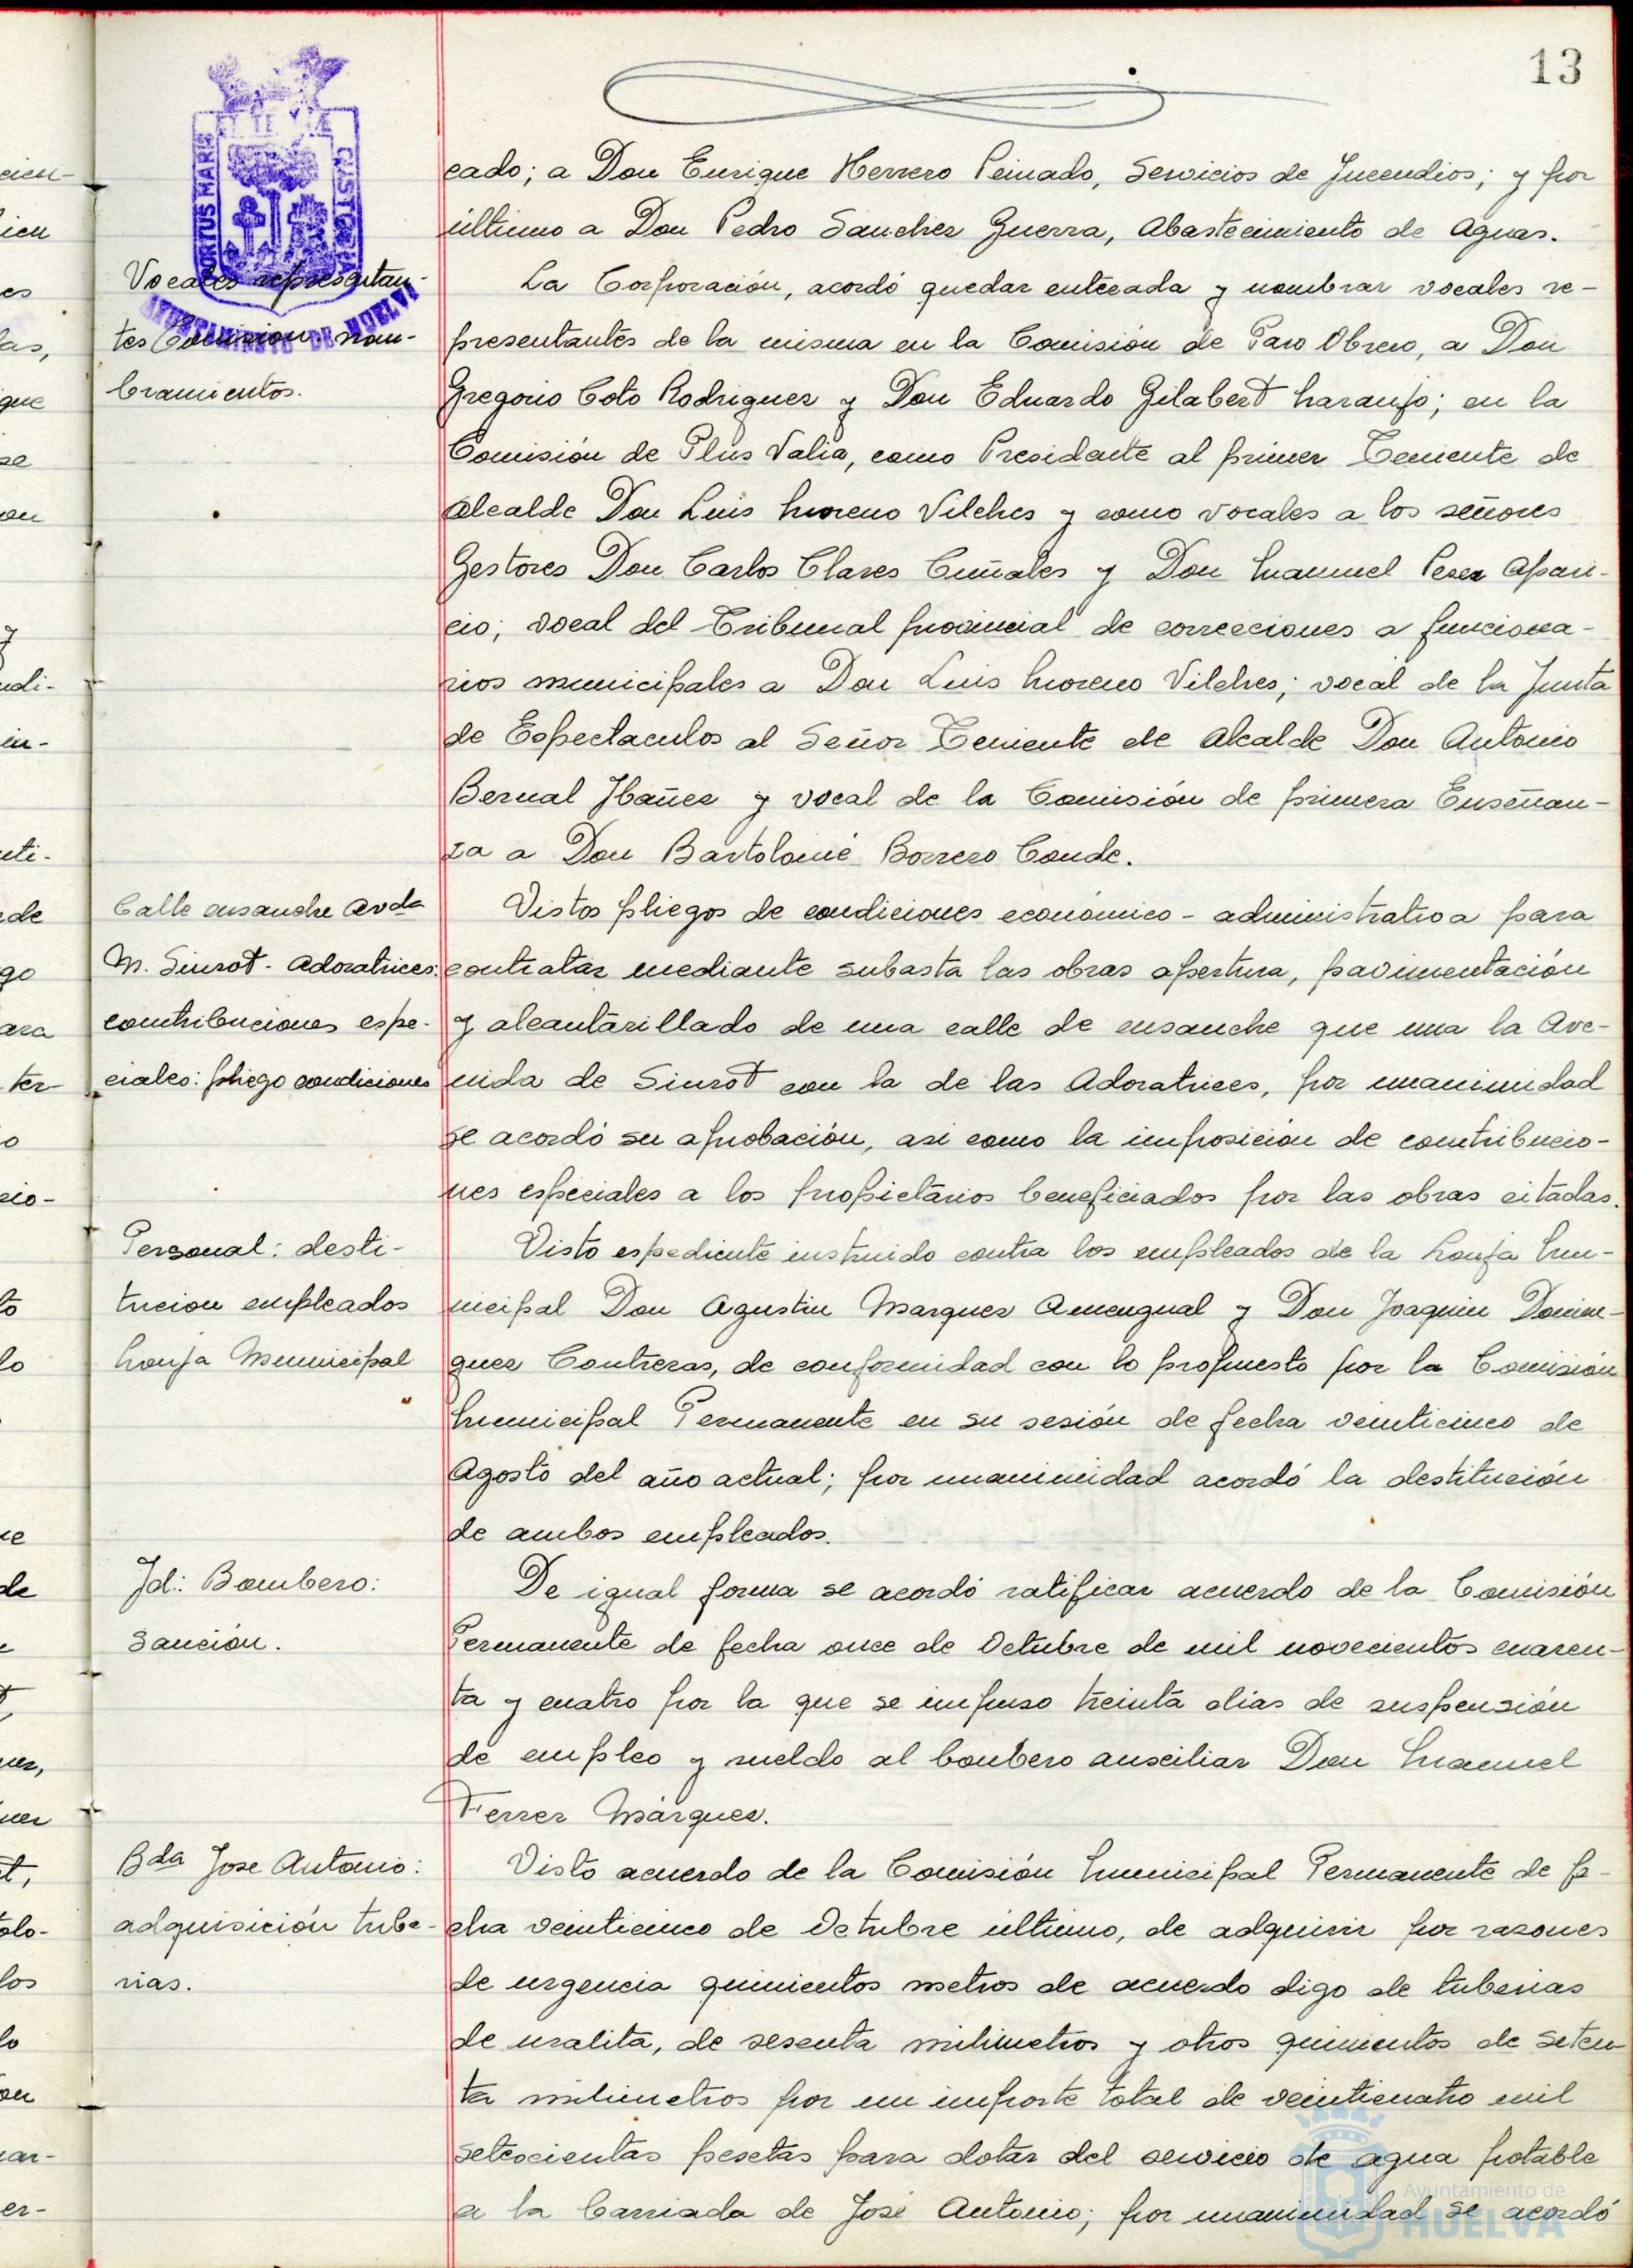 13
cado; a Don Enrique Herrero Peinado, Servicios de Incendios; y por
último a Don Pedro Sanchez Guerra, Abastecimiento de Aguas.
Vocales representan-
tes Comision: nom-
bramientos.
La Corporación, acordó quedar enterada y nombrar vocales re-
presentantes de la misma en la Comisión de Paro Obrero, a Don
Gregorio Coto Rodriguez y Don Eduardo Gilabert Naranjo; en la
Comisión de Plus Valia, como Presidente al primer Teniente de
Alcalde Don Luis Moreno Vilches y como vocales a los señores
Gestores Don Carlos Clares Cuñales y Don Manuel Perez Apari-
cio; vocal del Tribunal provincial de correcciones a funciona-
rios municipales a Don Luis Moreno Vilches; vocal de la Junta
de Espectaculos al Señor Teniente de Alcalde Don Antonio
Bernal Ibañez y vocal de la Comisión de primera Enseñan-
za a Don Bartolomé Borrero Conde.
Calle ensanche Avda
M. Siurot - Adoratrices:
contribuciones espe-
ciales: pliego condiciones
Vistos pliegos de condiciones económico-administrativa para
contratar mediante subasta las obras apertura, pavimentación
y alcantarillado de una calle de ensanche que una la Ave-
nida de Siurot con la de las Adoratrices, por unanimidad
se acordó su aprobación, asi como la imposición de contribucio-
nes especiales a los propietarios beneficiados por las obras citadas.
Personal: desti-
tucion empleados
Lonja Municipal
Visto espediente instruido contra los empleados de la Lonja Mu-
nicipal Don Agustin Marquez Amengual y Don Joaquin Domin-
guez Contreras, de conformidad con lo propuesto por la Comisión
Municipal Permanente en su sesión de fecha veinticinco de
Agosto del año actual; por unanimidad acordó la destitución
de ambos empleados.
Id: Bombero:
Sanción.
De igual forma se acordó ratificar acuerdo de la Comisión
Permanente de fecha once de Octubre de mil novecientos cuaren-
ta y cuatro por la que se impuso treinta dias de suspensión
de empleo y sueldo al bombero auseiliar Don Manuel
Ferrer Márquez.
Bda Jose Antonio:
adquisición tube-
rias.
Visto acuerdo de la Comisión Municipal Permanente de fe-
cha veinticinco de Octubre último, de adquirir por razones
de urgencia quinientos metros de acuerdo digo de tuberias
de uralita, de sesenta milimetros y otros quinientos de seten-
ta milimetros por un importe total de veinticuatro mil
setecientas pesetas para dotar del servicio de agua potable
a la barriada de José Antonio; por unanimidad se acordó
Ayuntamiento de
HUELVA